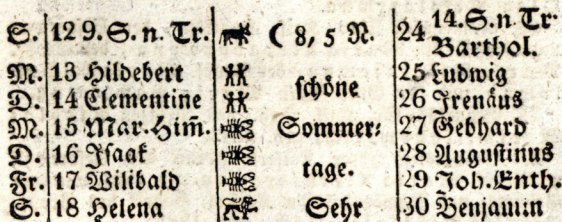 S. 12 9. S. n. Tr. ( 8, 5 N. 24 14. S. n. Tr. Barthol.
M. 13 Hildebert 25 Ludwig
D. 14 Clementine schöne 26 Irenäus
M. 15 Mar. Him̃. Sommer⸗ 27 Gebhard
D. 16 Isaak tage. 28 Augustinus
Fr. 17 Wilibald 29 Joh. Enth.
S. 18 Helena Sehr 30 Benjamin